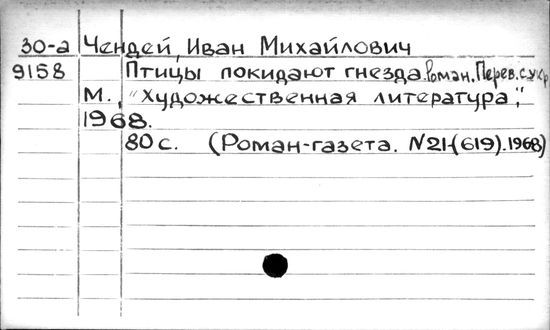 30-а Чендей, Иван Михайлович
9158 Птицы покидают гнезда. Роман. Перев. с укр
М., "Художественная литература",
1968.
80 с. (Роман-газета. N21-(619). 1968)